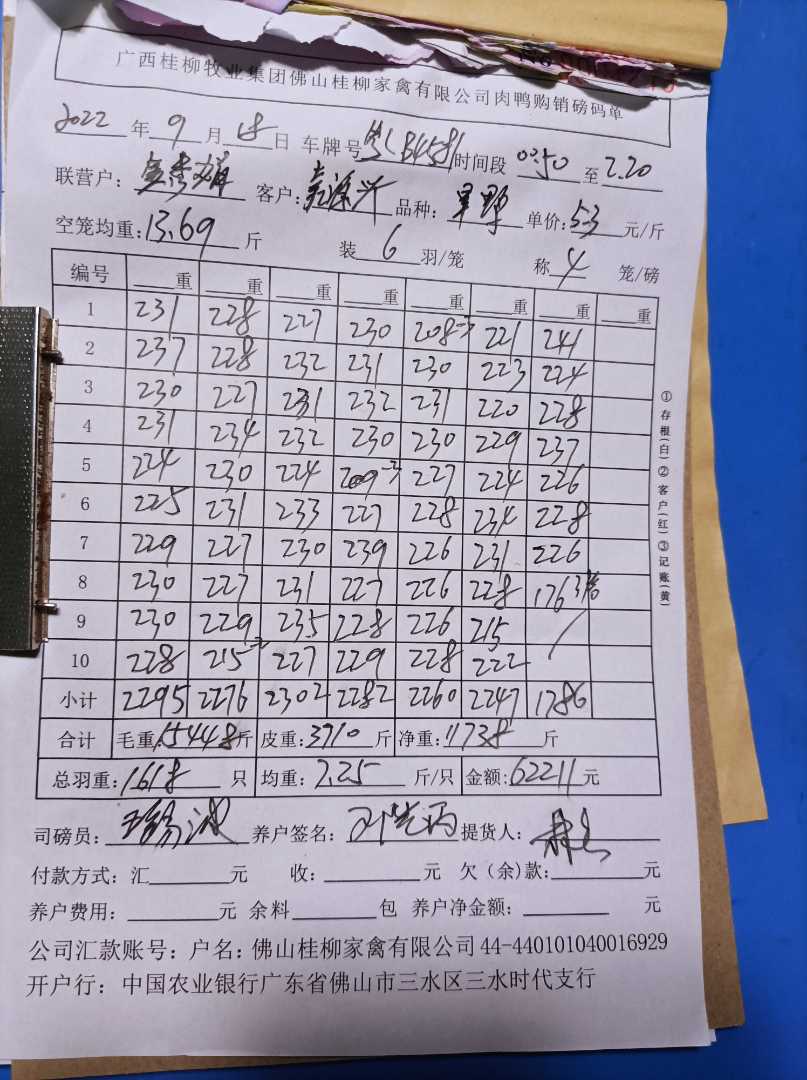 广西桂柳牧业集团佛山桂柳家禽有限公司肉鸭购销磅码单
2022年9月18日 车牌号 时间段 02:50 至 2.20
联营户: 客户: 品种: 草野 单价: 5.3 元/斤
空笼均重: 13.69 斤 装 6 羽/笼 称 4 笼/磅
编号 重 重 重 重 重 重 重 重
1 231 228 227 230 208-3 221 241
2 237 228 232 231 230 223 224
3 230 227 231 232 231 220 228
4 231 234 232 230 230 229 237
5 224 230 224 209-3 227 224 226
6 225 231 233 227 228 234 228
7 229 227 230 239 226 231 226
8 230 227 231 227 226 228 176 3笼
9 230 229 235 228 226 215
10 228 215-2 227 229 228 222
小计 2295 2276 2302 2282 2260 2247 1786
合计 毛重: 15448 斤 皮重: 3710 斤 净重: 11738 斤
总羽重: 1618 只 均重: 7.25 斤/只 金额: 62211 元
司磅员: 养户签名: 提货人:
付款方式: 汇 元 收: 元 欠(余)款: 元
养户费用: 元 余料 包 养户净金额: 元
公司汇款账号: 户名: 佛山桂柳家禽有限公司 44-440101040016929
开户行: 中国农业银行广东省佛山市三水区三水时代支行
①存根(白)②客户(红)③记账(黄)